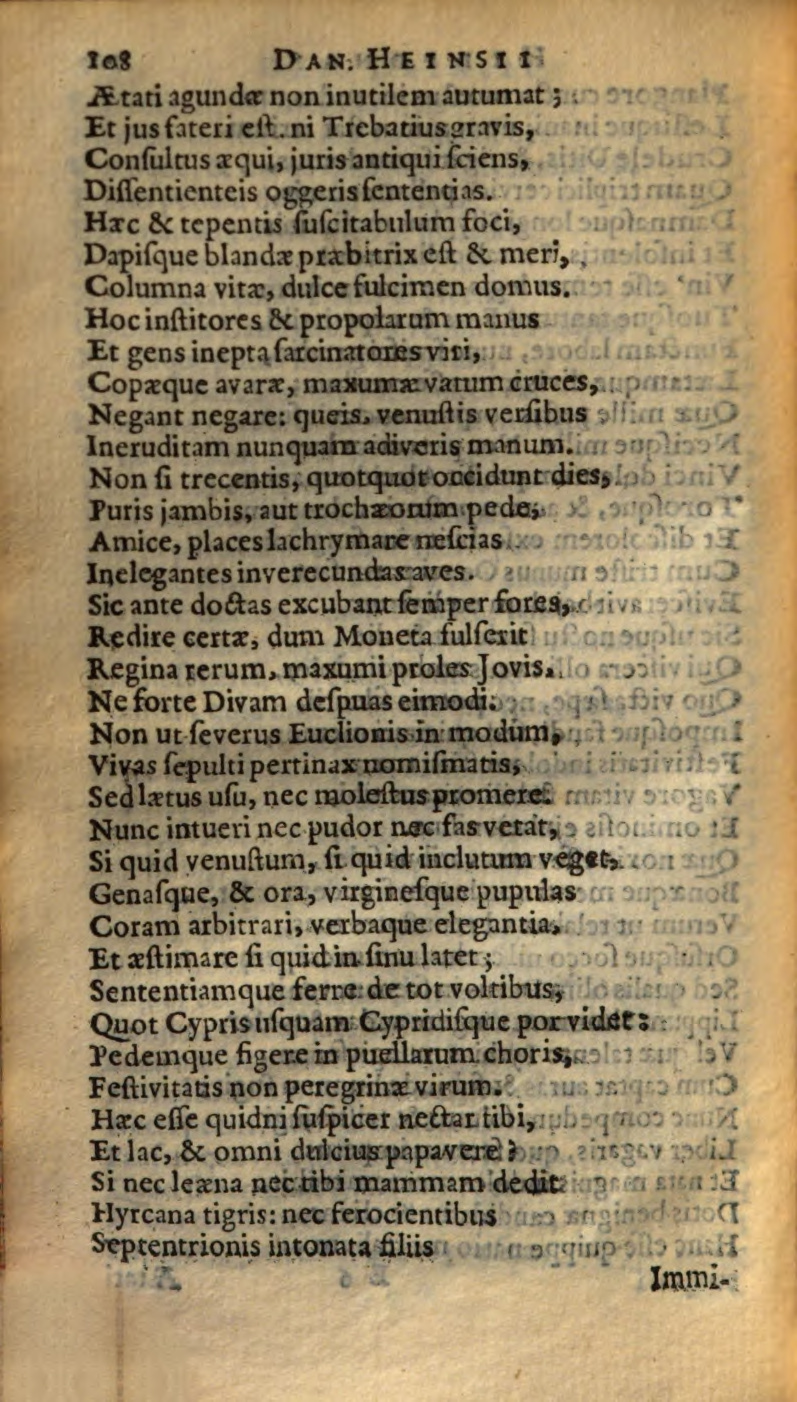 108 DAN. HEINSII
Ætati agundæ non inutilem autumat;
Et jus fateri est. ni Trebatius gravis,
Conſultus æqui, juris antiqui ſciens,
Diſſentienteis oggeris ſententias.
Hæc & tepentis ſuſcitabulum foci,
Dapiſque blandæ præbitrix eſt & meri,
Columna vitæ, dulce fulcimen domus.
Hoc inſtitores & propolarum manus
Et gens inepta ſarcinatores viri,
Copæque avaræ, maxumæ vatum cruces,
Negant negare: queis, venuſtis verſibus
Ineruditam nunquam adiveris manum.
Non ſi trecentis, quotquot occidunt dies,
Puris jambis, aut trochæorum pede,
Amice, places lachrymare neſcias
Inelegantes inverecundas aves.
Sic ante doctas excubant ſemper fores,
Redire certæ, dum Moneta fulſerit
Regina rerum, maxumi proles Jovis.
Ne forte Divam deſpuas eimodi.
Non ut ſeverus Euclionis in modum,
Vivas ſepulti pertinax nomiſmatis,
Sed lætus uſu, nec moleſtus promere.
Nunc intueri nec pudor nec fas vetat,
Si quid venuſtum, ſi quid inclutum veget,
Genaſque, & ora, virgineſque pupulas
Coram arbitrari, verbaque elegantia,
Et æſtimare ſi quid in ſinu latet;
Sententiamque ferre de tot voltibus,
Quot Cypris uſquam Cypridiſque por videt:
Pedemque figere in puellarum choris,
Feſtivitatis non peregrinæ virum.
Hæc eſſe quidni ſuſpicer nectar tibi,
Et lac, & omni dulcius papavere?
Si nec leæna nec tibi mammam dedit
Hyrcana tigris: nec ferocientibus
Septentrionis intonata filiis
Immi-